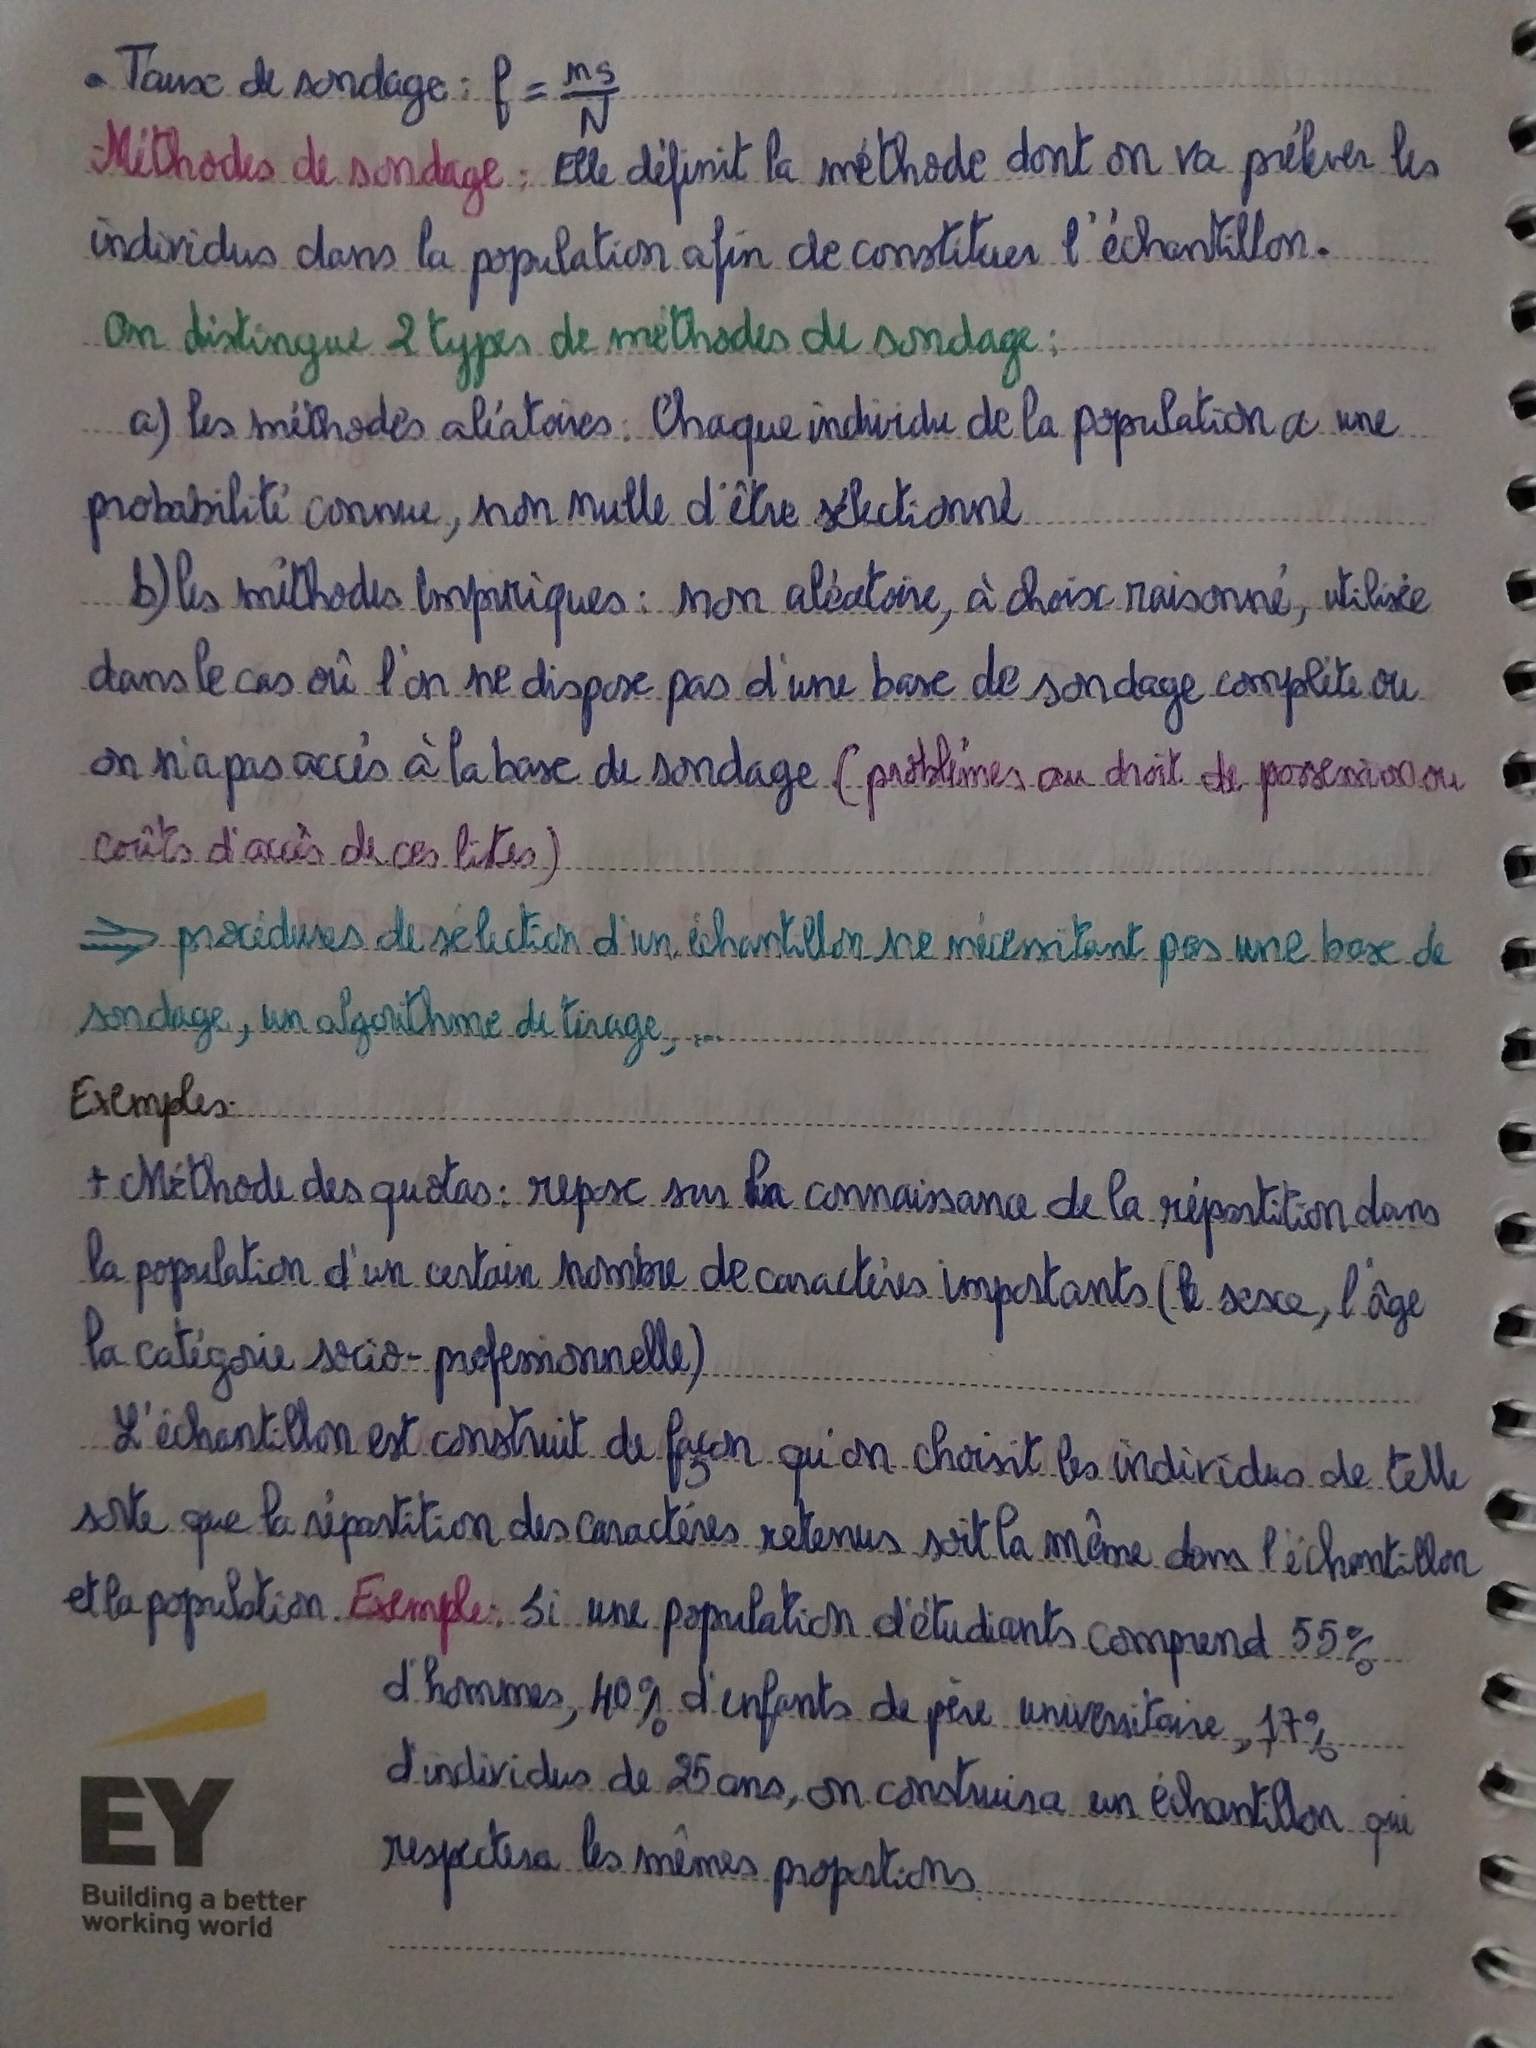 • Taux de sondage : f = ns/N
- Méthodes de sondage : Elle définit la méthode dont on va prélever les
individus dans la population afin de constituer l'échantillon.
On distingue 2 types de méthodes de sondage :
a) les méthodes aléatoires : Chaque individu de la population a une
probabilité connue, non nulle d'être sélectionné
b) les méthodes Empiriques : non aléatoire, à choix raisonné, utilisée
dans le cas où l'on ne dispose pas d'une base de sondage complète ou
on n'a pas accès à la base de sondage (problèmes au droit de possession ou
coûts d'accès de ces listes)
⇒ procédures de sélection d'un échantillon ne nécessitant pas une base de
sondage, un algorithme de tirage, ...
Exemples:
+ Méthode des quotas : repose sur la connaissance de la répartition dans
la population d'un certain nombre de caractères importants (le sexe, l'âge
la catégorie socio-professionnelle)
L'échantillon est construit de façon qu'on choisit les individus de telle
sorte que la répartition des caractères retenus soit la même dans l'échantillon
et la population. Exemple : Si une population d'étudiants comprend 55%
d'hommes, 40% d'enfants de père universitaire, 17%
d'individus de 25 ans, on construira un échantillon qui
respectera les mêmes proportions.
EY
Building a better
working world